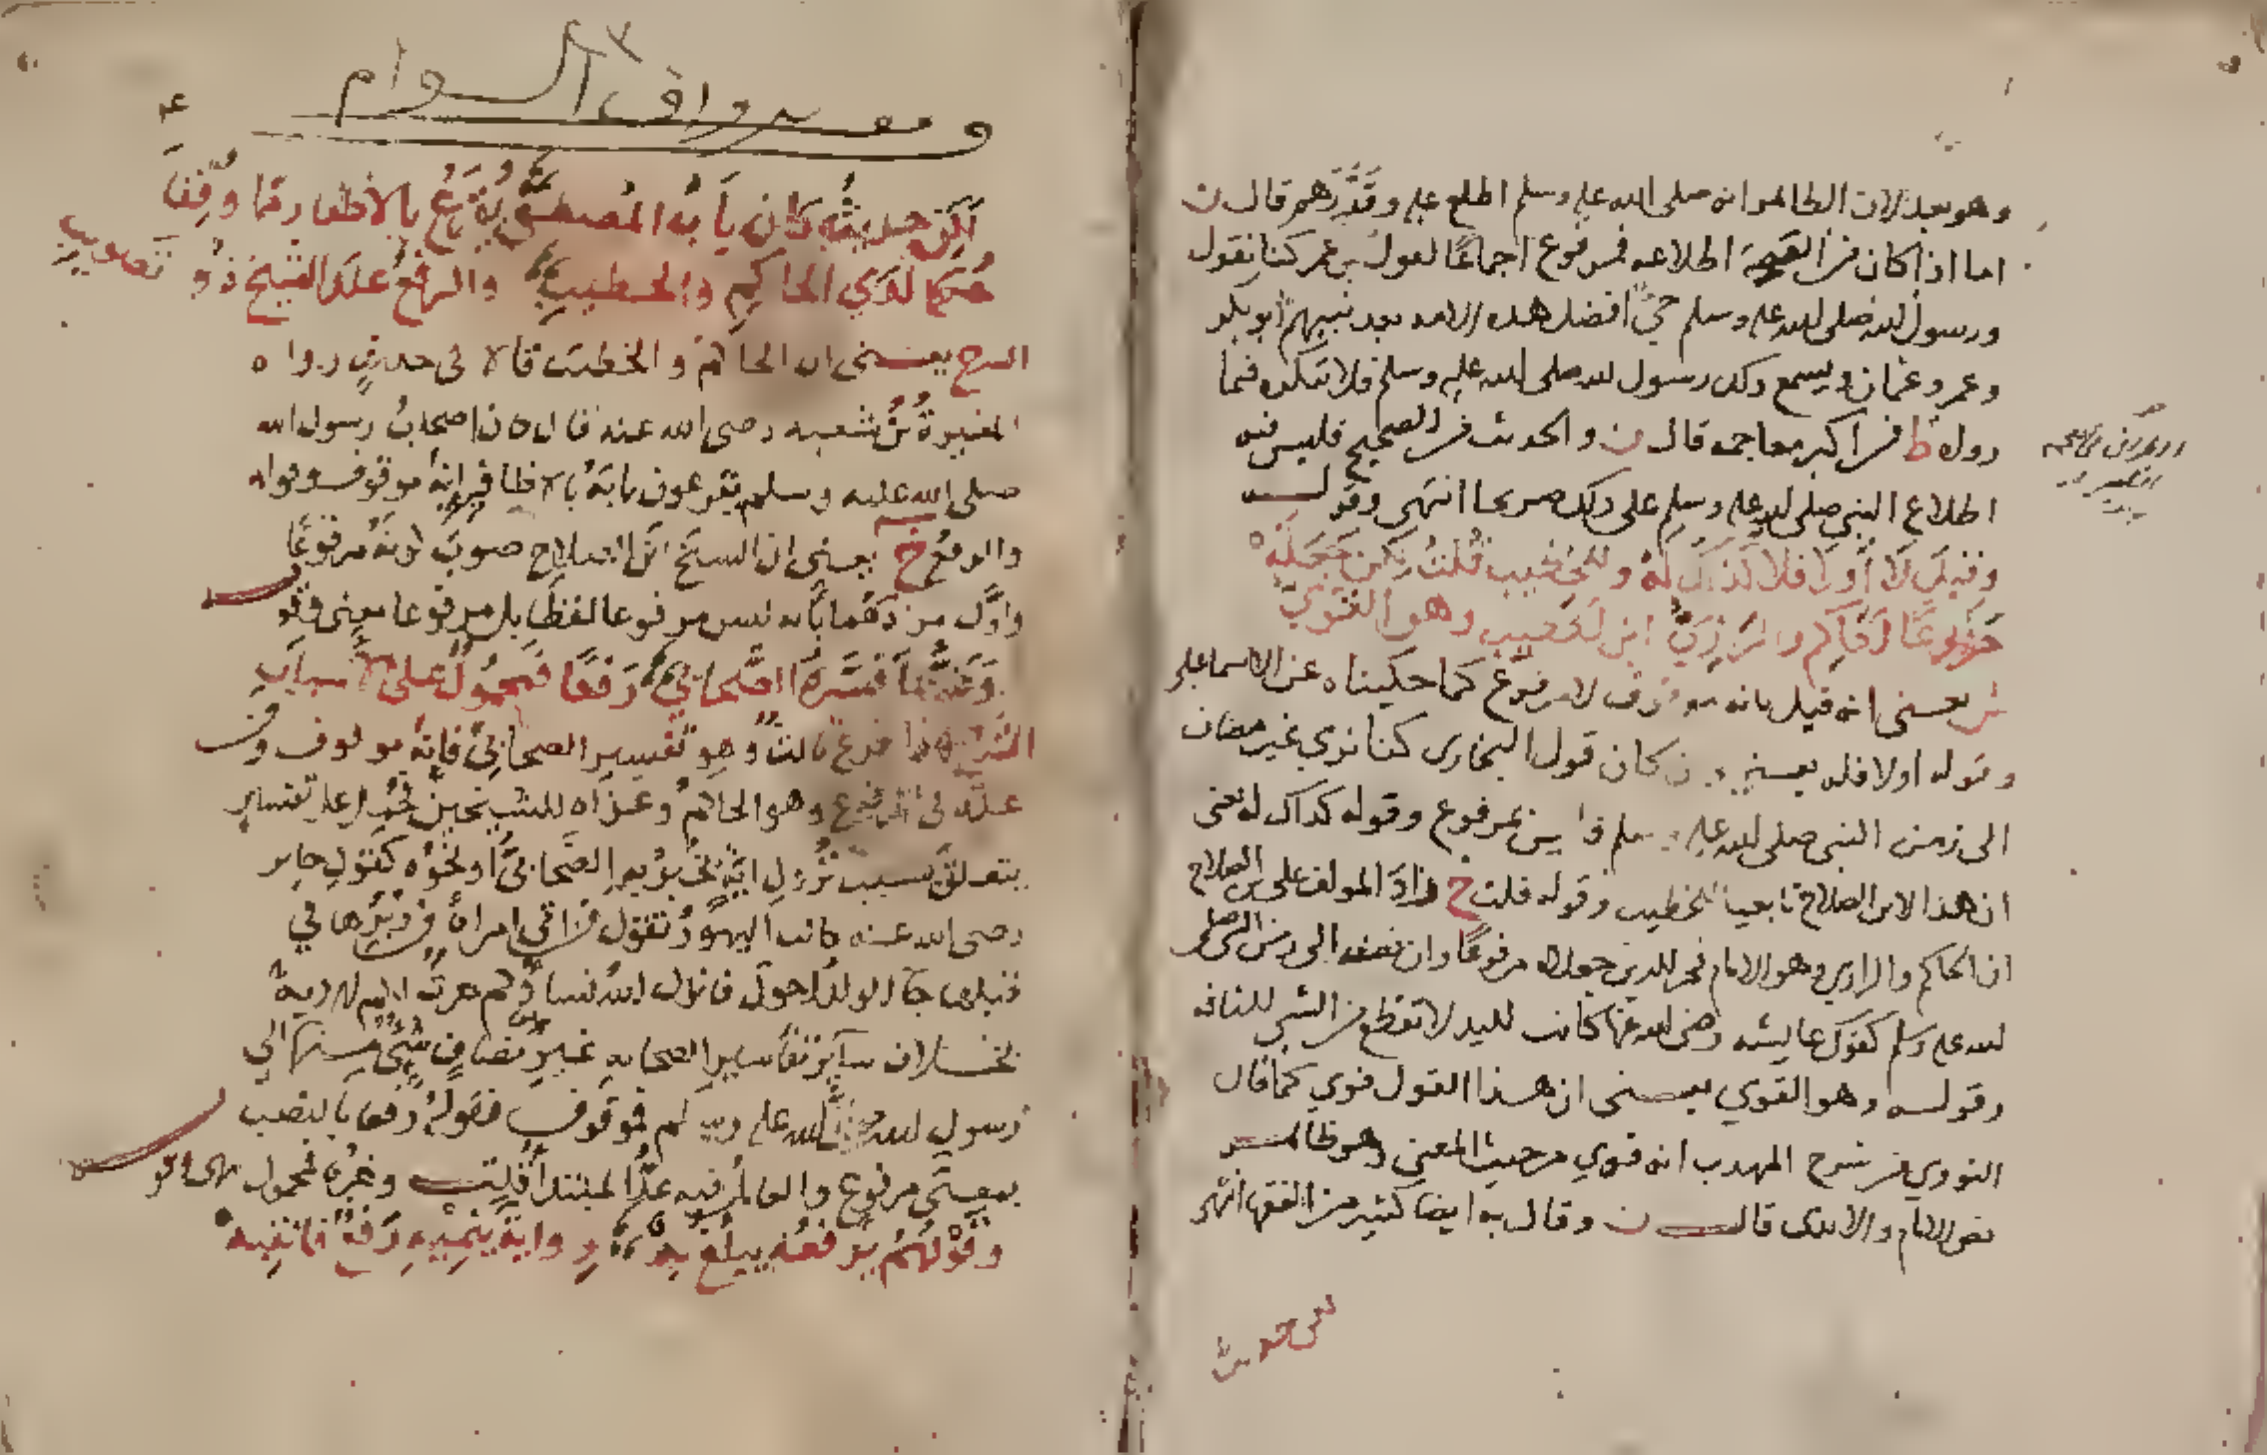 وهو بعد لان الظاهر انه صلى الله عليه وسلم اطلع عليه وقررهم قال ن
اما اذا كان في القصة اطلاعه فمرفوع اجماعا لقول بن عمر كنا نقول
ورسول الله صلى الله عليه وسلم حي افضل هذه الامه بعد نبيها ابو بكر
وعمر وعثمان ويسمع ذلك رسول الله صلى الله عليه وسلم فلا ينكره فيما
رواه ط في اكبر معاجمه قال ن والحديث في الصحيح فليس فيه
اطلاع النبي صلى الله عليه وسلم على ذلك صريحا انتهى وقوله
وقيل لا أو لا فلا كذاك له وللخطيب قلت لكن جعله
مرفوعا الحاكم والرازي ابن الخطيب وهو القوي
ش يعني انه قيل بانه موقوف لا مرفوع كما حكيناه عن الاسماعيلي
وقوله اولا فلا يعني ان كان قول البخاري كنا نري غير مضاف
الى زمن النبي صلى الله عليه وسلم فليس بمرفوع وقوله كذاك له يعني
ان هذا لابن الصلاح تابعا للخطيب وقوله قلت خ زاده المولف على بن الصلاح
ان الحاكم والرازي وهو الامام فخر الدين جعلاه مرفوعا وان نضفه الى زمن النبي صلى
الله عليه وسلم كقول عايشه رضي الله عنها كانت اليد لا تقطع في الشي التافه
وقوله وهو القوي يعني ان هذا القول قوي كما قال
النووي في شرح المهذب انه قوي من حيث المعنى وهو ظاهر
نص الامام والامدى قال ن وقال به ايضا كثير من الفقها انتهى
لكن حديث كان باب المصطفى يقرع بالاظفار مما وقفا
حكما لدي الحاكم والخطيب والرفع عند الشيخ ذو تصويب
الشرح يعني ان الحاكم والخطيب قالا في حديث رواه
المغيرة بن شعبه رضي الله عنه قال كان اصحاب رسول الله
صلى الله عليه وسلم يقرعون بابه بالاظافير انه موقوف وقوله
والرفع خ يعني ان الشيخ ابن الصلاح صوب كونه مرفوعا
واول من وقفه بانه ليس مرفوعا لفظا بل مرفوعا معنى وقو
وعد ما فسره الصحابي رفعا فمحمول على الاسباب
الشرح هذا فرع ثالث وهو تفسير الصحابي فانه موقوف وفي
عده في المرفوع وهو الحاكم وعزاه للشيخين محمول على تفسير
يتعلق بسبب نزول اية يخبر بهم الصحابي او نحوه كقول جابر
رضي الله عنه كانت اليهود تقول من اتى امراة في دبرها في
قبلها جا الولد احول فانزل الله نساوكم حرث لكم الاية
بخلاف ساير تفاسير الصحابه غير مضاف شي منها الي
رسول الله صلى الله عليه وسلم فموقوف فقوله رفعا بالنصب
بمعنى مرفوع والعامل فيه عد المبتدا وخبره فمحمول
وقولهم يرفعه يبلغ به رواية ينميه رفع فانتبه